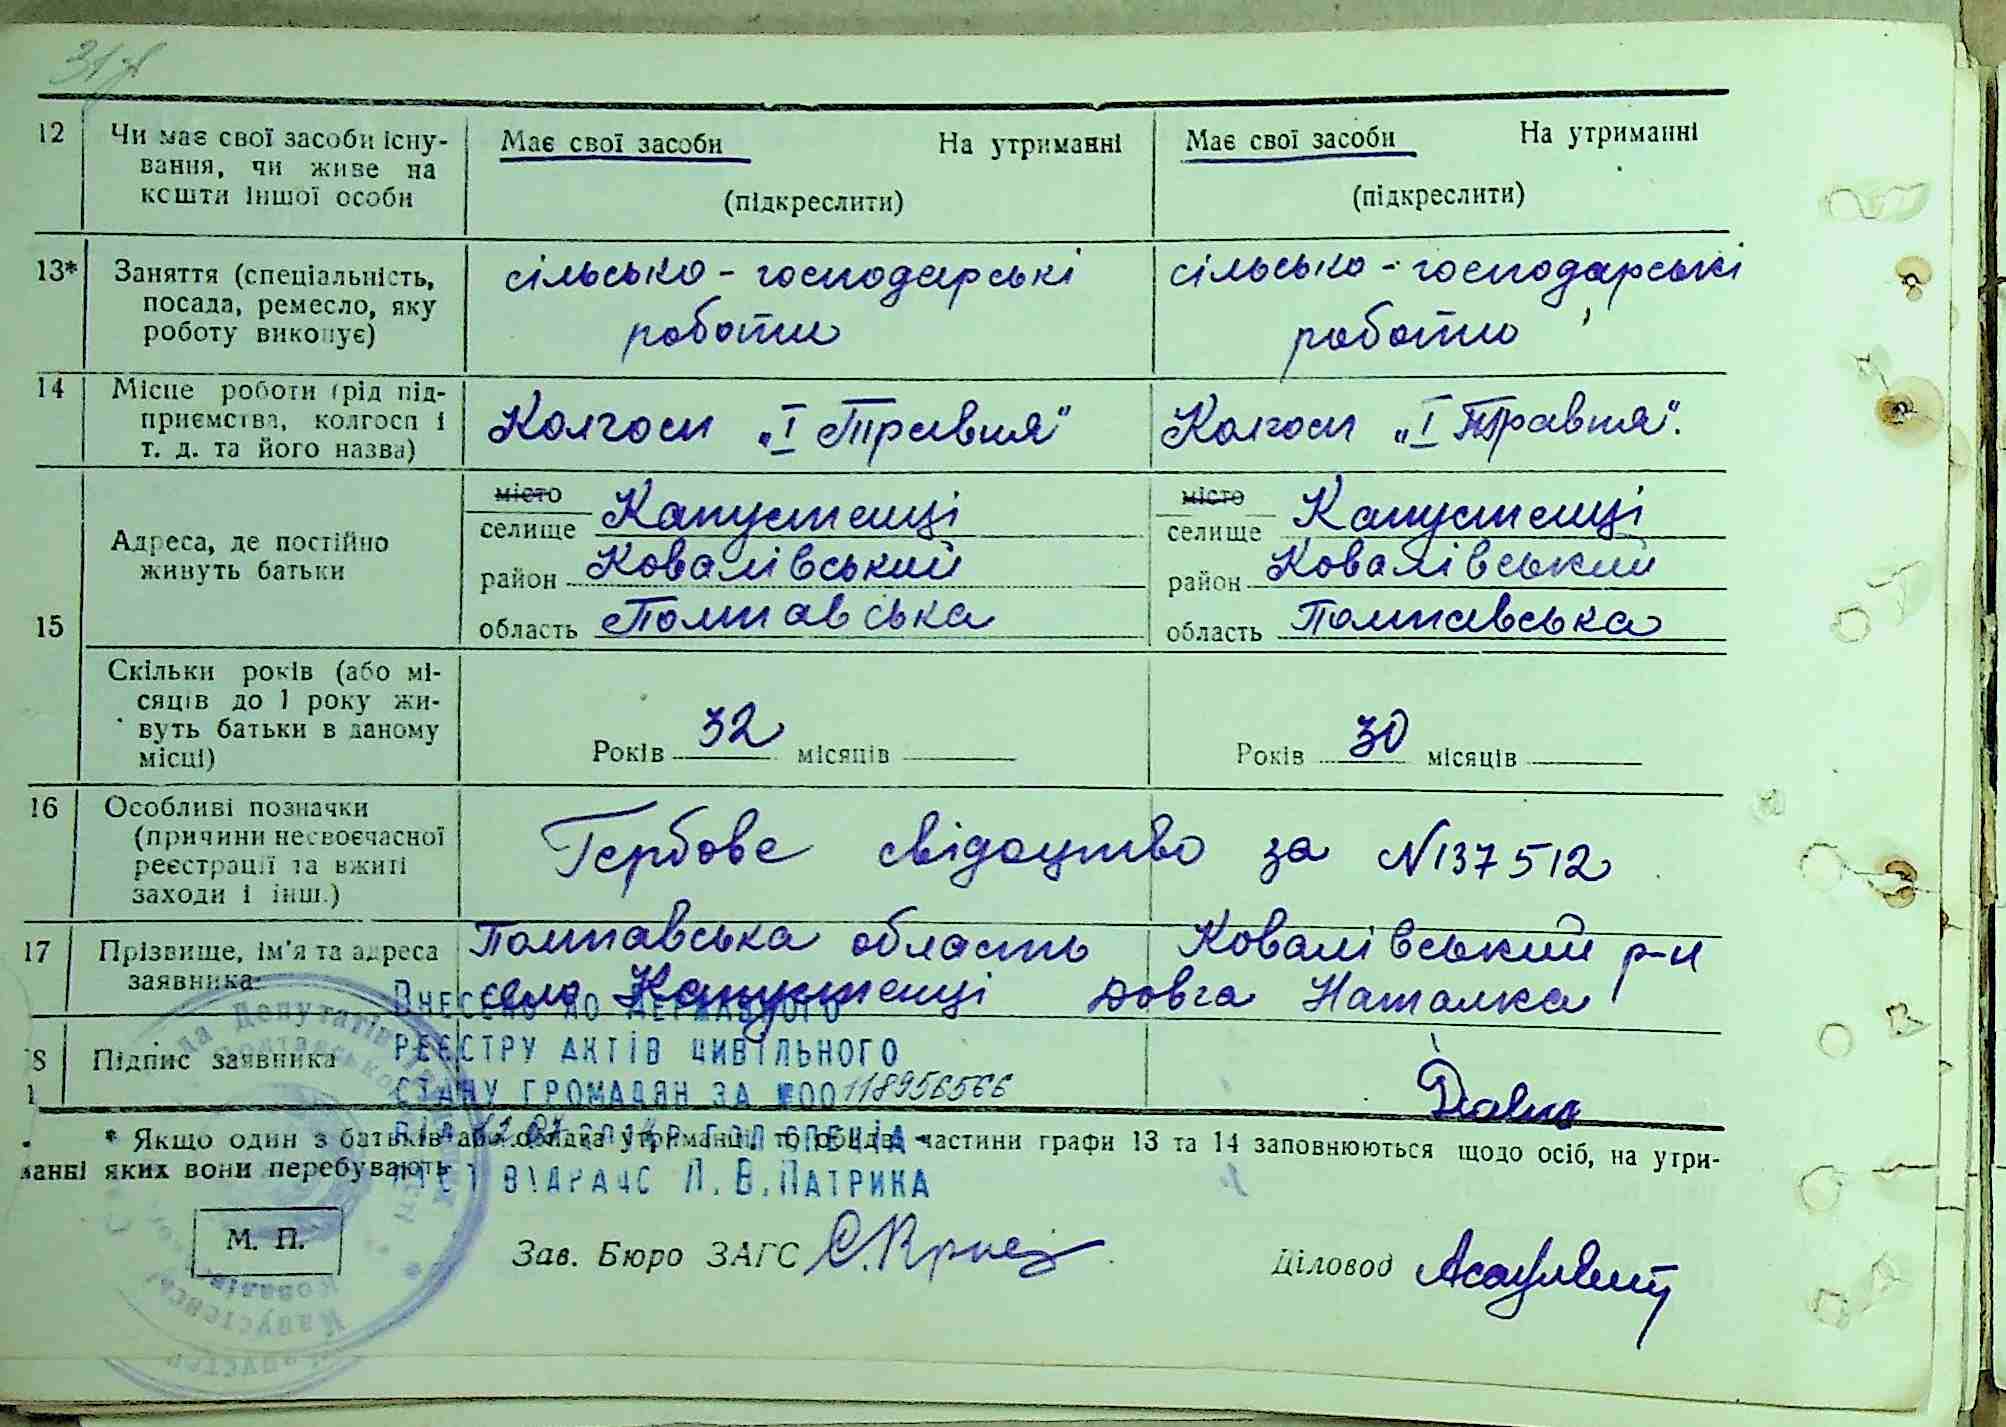 12 Чи має свої засоби існу- Має свої засоби На утриманні Має свої засоби На утриманні
вання, чи живе на
кошти іншої особи (підкреслити) (підкреслити)
13* Заняття (спеціальність, сільсько-господарські сільсько-господарські
посада, ремесло, яку
роботу виконує) роботи роботи
14 Місце роботи (рід під-
приємства, колгосп і Колгосп „I Травня" Колгосп „I Травня".
т. д. та його назва)
місто місто
селище Капустенці селище Капустенці
Адреса, де постійно
живуть батьки район Ковалівський район Ковалівський
15 область Полтавська область Полтавська
Скільки років (або мі-
сяців до 1 року жи-
вуть батьки в даному
місці) Років 32 місяців Років 30 місяців
16 Особливі позначки
(причини несвоєчасної Гербове свідоцтво за N137512
реєстрації та вжиті
заходи і інш.)
17 Прізвище, ім'я та адреса Полтавська область Ковалівський р-н
заявника: село Капустенці Довга Наталка
Внесено до Державного
реєстру актів цивільного
Підпис заявника
стану громадян за №00118956566
* Якщо один з батьків або обидва утриманці, то обидві частини графи 13 та 14 заповнюються щодо осіб, на утри-
манні яких вони перебувають
ВДРАЦС Л.В.Патрика
М. П. Зав. Бюро ЗАГС Діловод